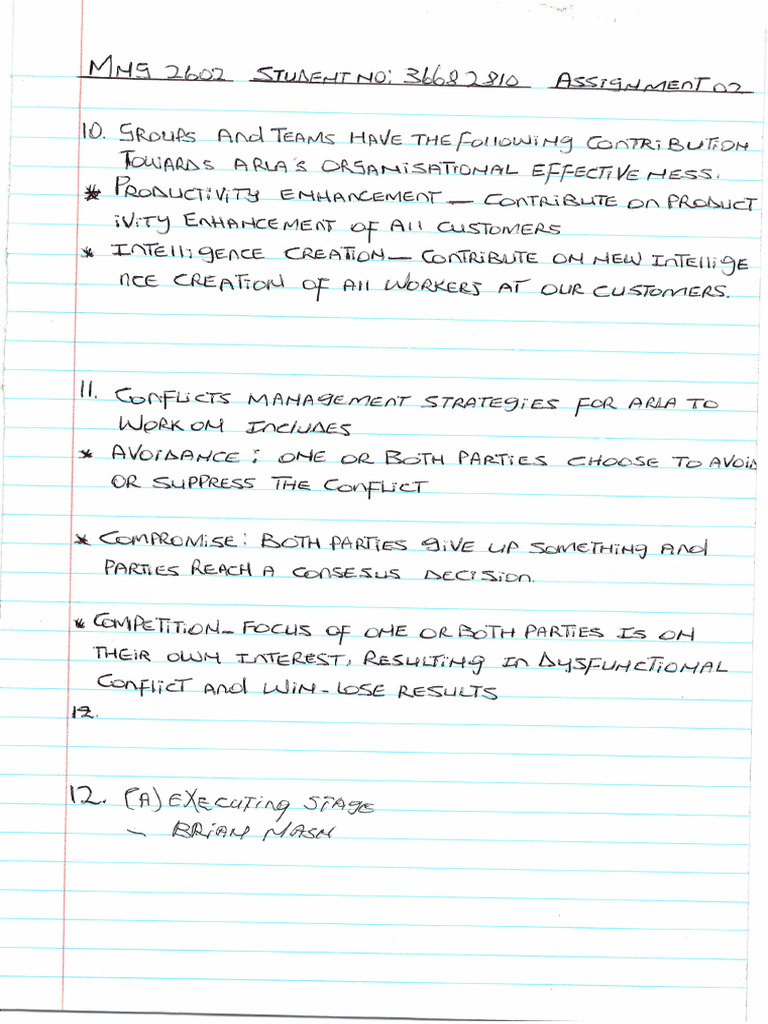 MNG 2602 STUDENT NO: 36682810 ASSIGNMENT 02
10. GROUPS AND TEAMS HAVE THE FOLLOWING CONTRIBUTION
TOWARDS ARLA'S ORGANISATIONAL EFFECTIVENESS.
* PRODUCTIVITY ENHANCEMENT — CONTRIBUTE ON PRODUCT
IVITY ENHANCEMENT OF ALL CUSTOMERS
* INTELLIGENCE CREATION — CONTRIBUTE ON NEW INTELLIGE
NCE CREATION OF ALL WORKERS AT OUR CUSTOMERS.
11. CONFLICTS MANAGEMENT STRATEGIES FOR ARLA TO
WORK ON INCLUDES
* AVOIDANCE: ONE OR BOTH PARTIES CHOOSE TO AVOID
OR SUPPRESS THE CONFLICT
* COMPROMISE: BOTH PARTIES GIVE UP SOMETHING AND
PARTIES REACH A CONSESUS DECISION.
* COMPETITION — FOCUS OF ONE OR BOTH PARTIES IS ON
THEIR OWN INTEREST, RESULTING IN DYSFUNCTIONAL
CONFLICT AND WIN-LOSE RESULTS
12.
12. (A) EXECUTING STAGE
– BRIAN MASH